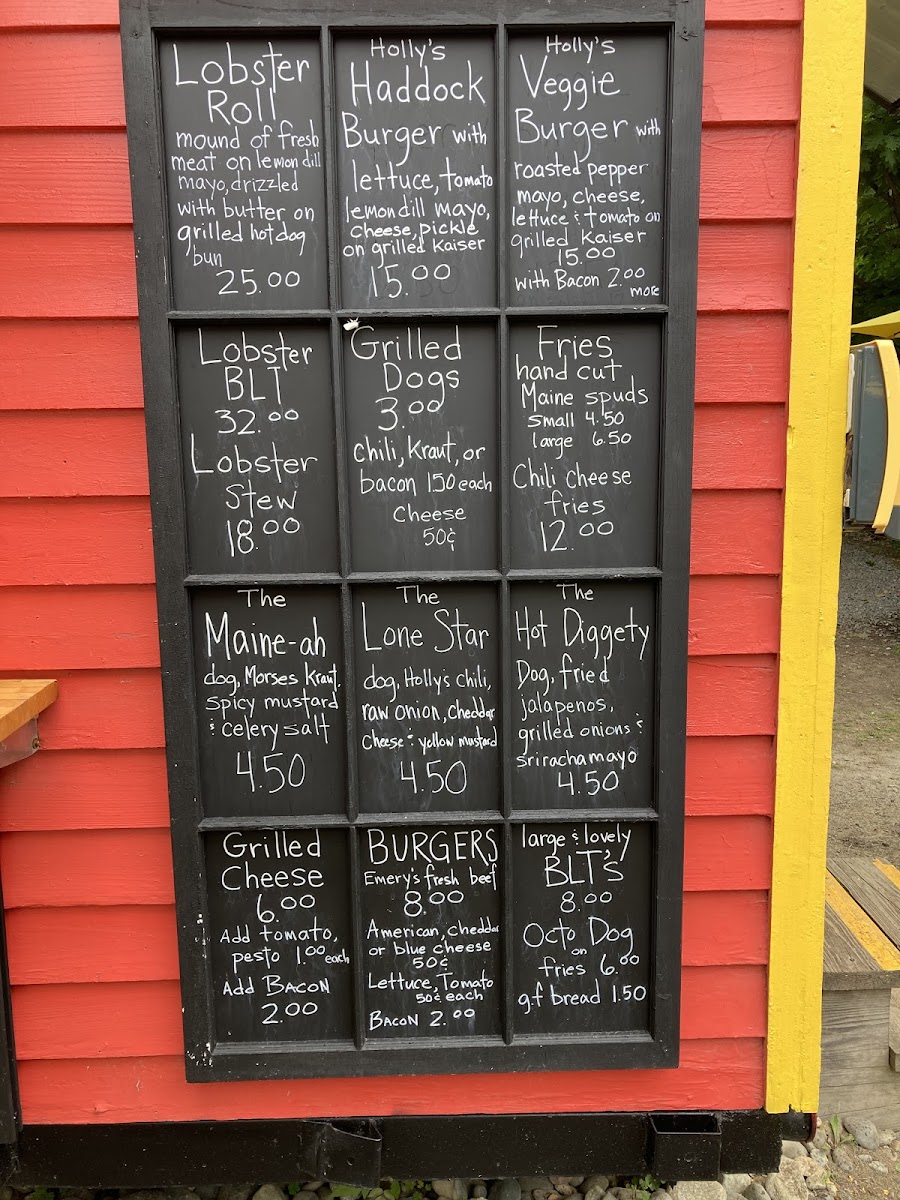 Lobster
Roll
mound of fresh
meat on lemon dill
mayo, drizzled
with butter on
grilled hotdog
bun
25.00
Holly's
Haddock
Burger with
lettuce, tomato
lemondill mayo,
cheese, pickle
on grilled Kaiser
15.00
Holly's
Veggie
Burger with
roasted pepper
mayo, cheese,
lettuce & tomato on
grilled Kaiser
15.00
with Bacon 2.00
more
Lobster
BLT
32.00
Lobster
Stew
18.00
Grilled
Dogs
3.00
Chili, Kraut, or
bacon 1.50 each
Cheese
50¢
Fries
hand cut
Maine spuds
small 4.50
large 6.50
Chili cheese
fries
12.00
The
Maine-ah
dog, Morses Kraut,
spicy mustard
& celery salt
4.50
The
Lone Star
dog, Holly's chili,
raw onion, cheddar
cheese & yellow mustard
4.50
The
Hot Diggety
Dog, fried
jalapenos,
grilled onions &
sriracha mayo
4.50
Grilled
Cheese
6.00
Add tomato,
pesto 1.00 each
Add BACON
2.00
BURGERS
Emery's fresh beef
8.00
American, cheddar
or blue cheese
50¢
Lettuce, Tomato
50¢ each
BACON 2.00
large & lovely
BLT's
8.00
Octo Dog
on
fries 6.00
g.f bread 1.50